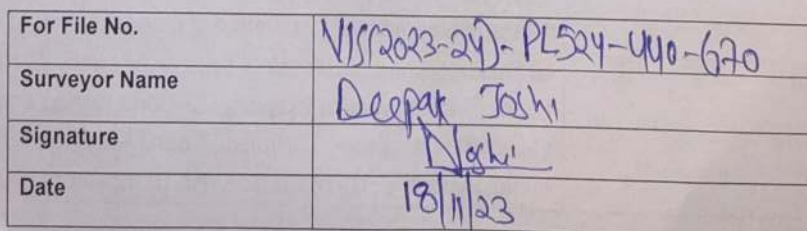 For File No. VIS(2023-24)-PL524-440-670
Surveyor Name Deepak Joshi
Signature DJoshi
Date 18/11/23